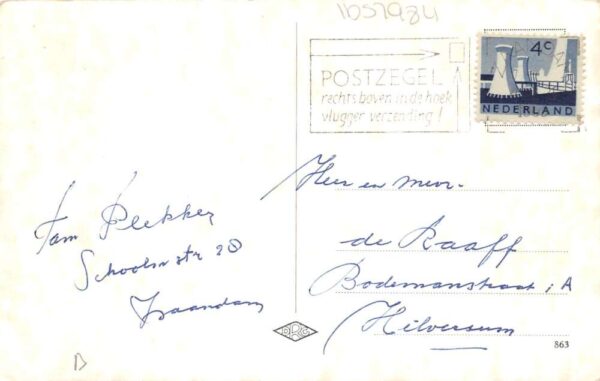 1057984
POSTZEGEL
rechts boven in de hoek
vlugger verzending!
4c
NEDERLAND
Fam Blekker
Schoolstr 28
Zaandam
Heer en Mevr.
de Raaff
Bodemanstraat 1A
Hilversum
863